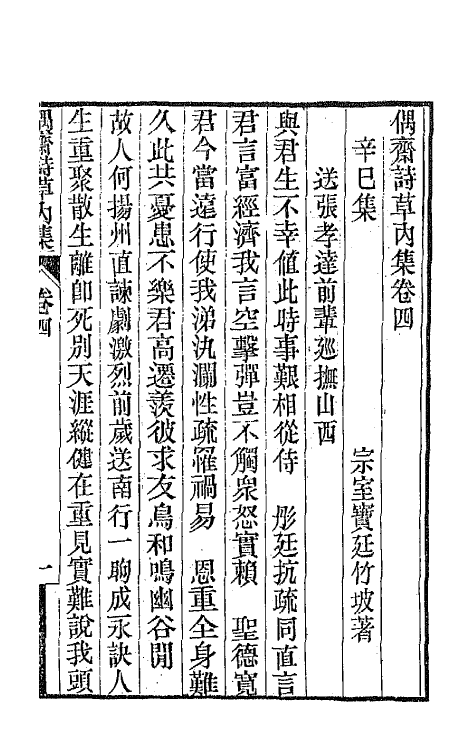 偶齋詩草內集卷四
辛巳集　　　　宗室寶廷竹坡著
送張孝達前輩廵撫山西
與君生不幸值此時事艱相從侍　彤廷抗疏同直言
君言富經濟我言空擊彈豈不觸衆怒實賴　聖德寬
君今當遠行使我涕汍瀾性疏罹禍易　恩重全身難
久此共憂患不樂君高遷羨彼求友鳥和鳴幽谷閒
故人何揚州直諫劇激烈前歲送南行一眴成永訣人
生重聚散生離卽死別天涯縱健在重見實難說我頭
偶齋詩草內集　卷四　一